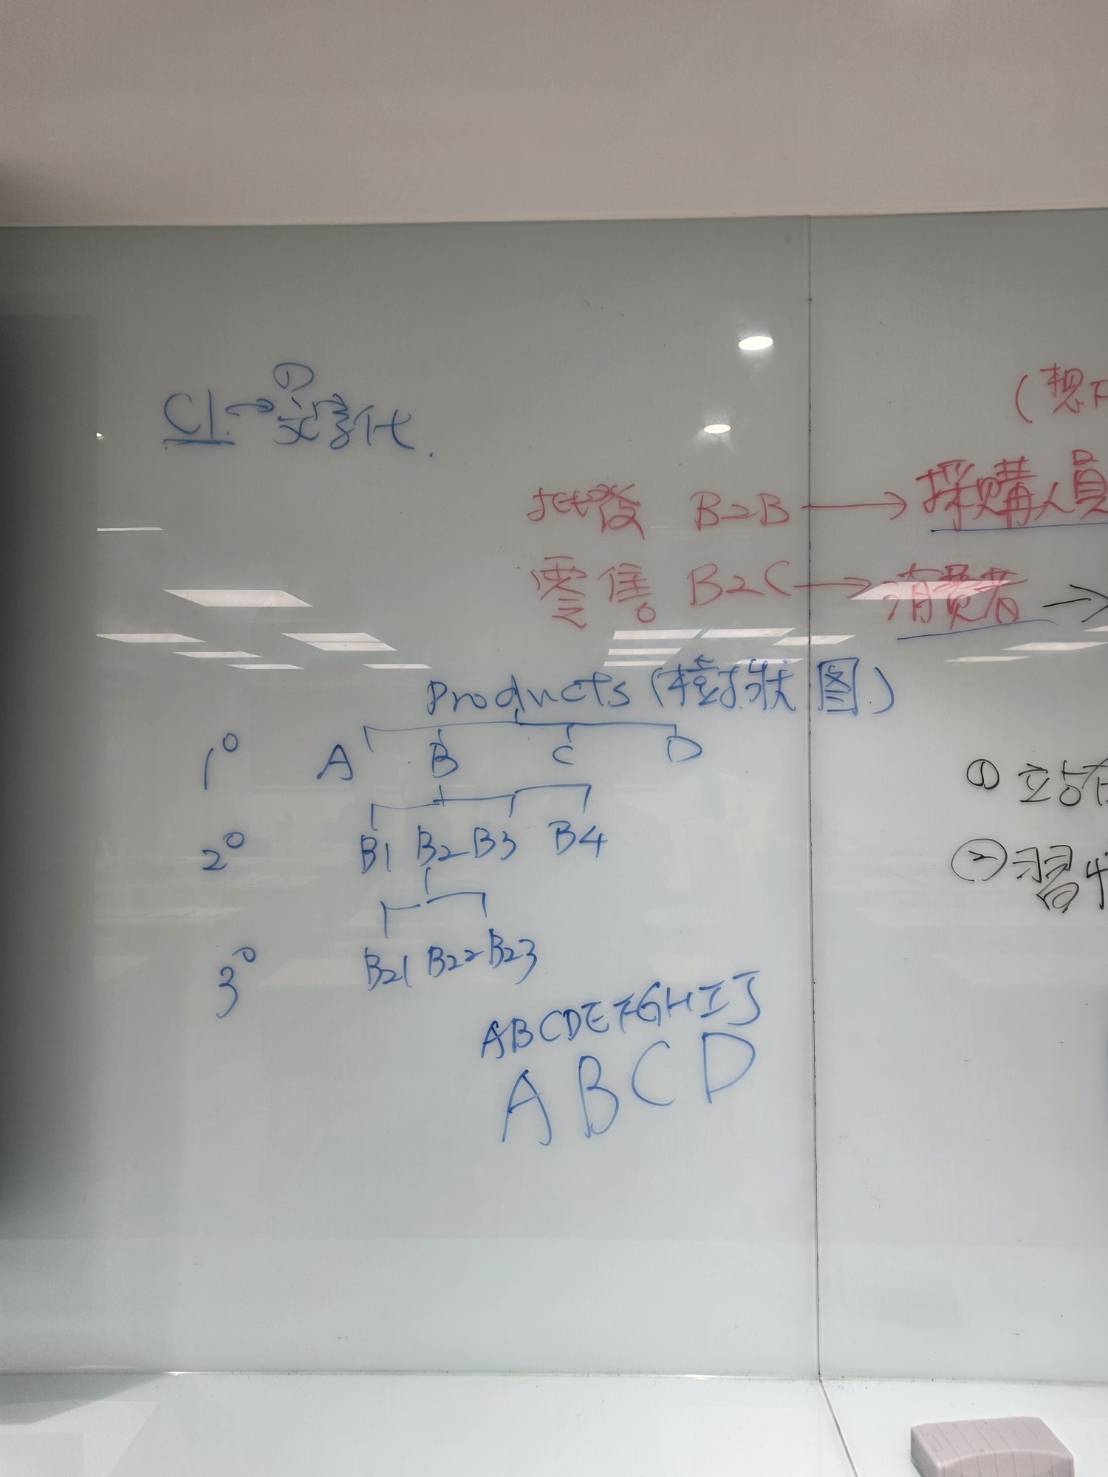 CI → ① 文字化.
(想
批發 B2B → 採購人員
零售 B2C → 消費者 →
Products (樹狀图)
1° A B C D
2° B1 B2 B3 B4
3° B21 B22 B23
ABCDEFGHIJ
A B C D
① 站在
② 習慣